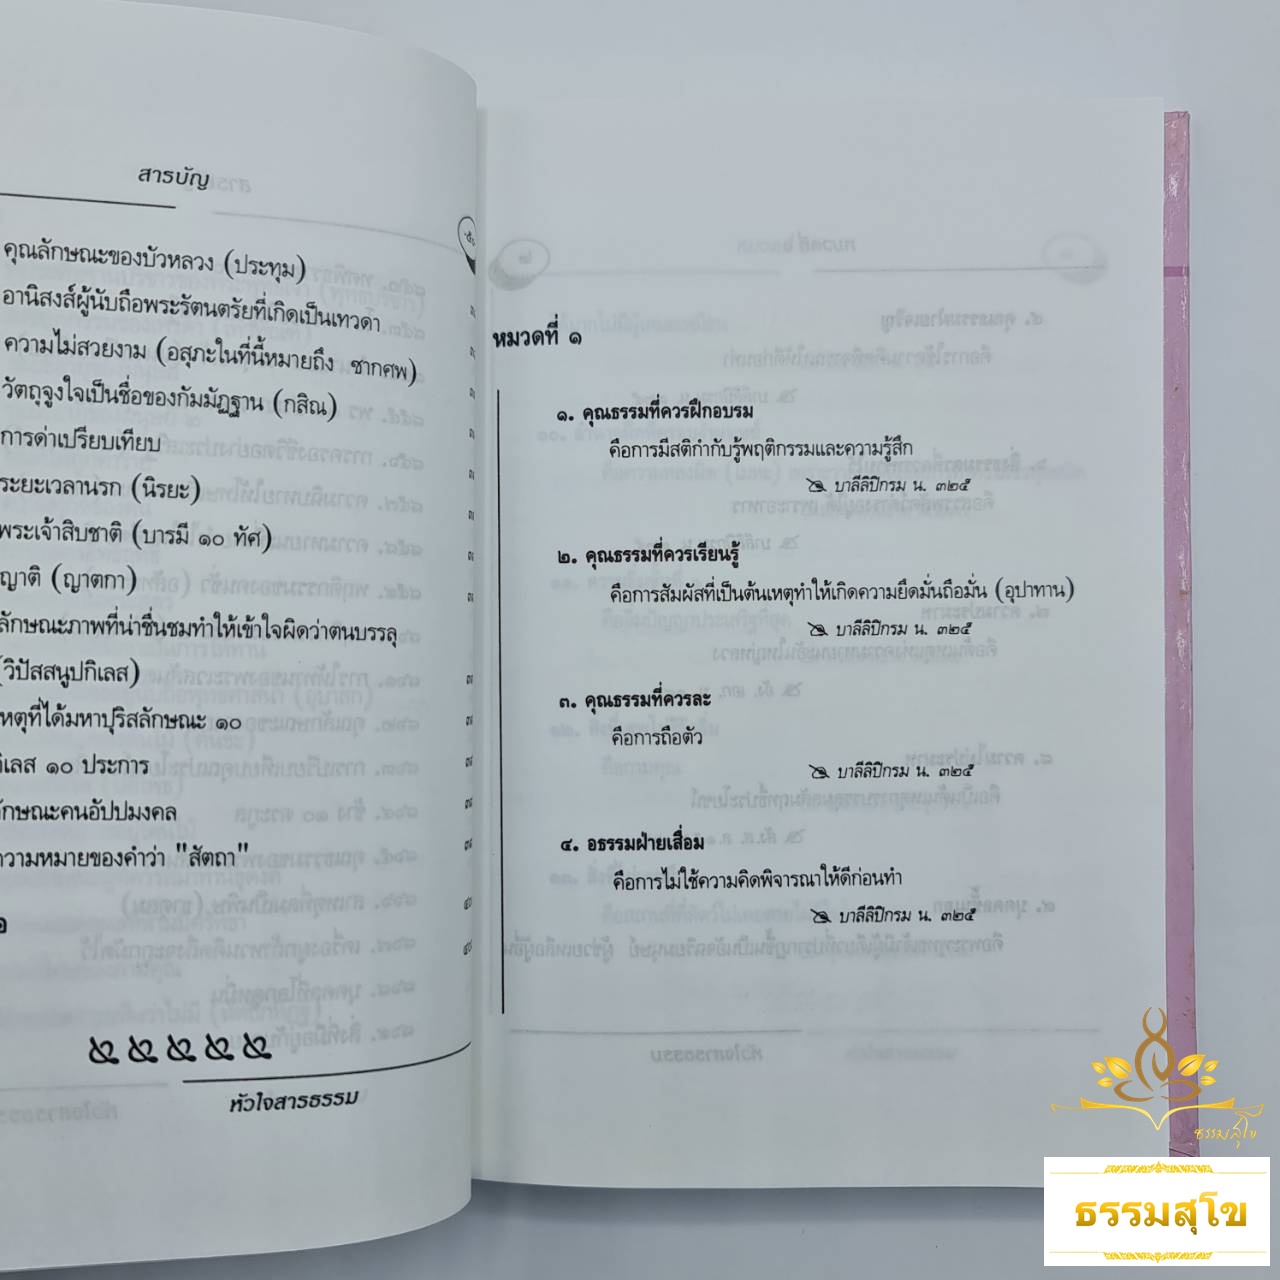 สารบัญ
คุณลักษณะของบัวหลวง (ประทุม)
อานิสงส์ผู้นับถือพระรัตนตรัยที่เกิดเป็นเทวดา
ความไม่สวยงาม (อสุภะในที่นี้หมายถึง ซากศพ)
วัตถุจูงใจเป็นชื่อของกัมมัฏฐาน (กสิณ)
การด่าเปรียบเทียบ
ระยะเวลานรก (นิรยะ)
พระเจ้าสิบชาติ (บารมี ๑๐ ทัศ)
ญาติ (ญาตกา)
ลักษณะภาพที่น่าชื่นชมทำให้เข้าใจผิดว่าตนบรรลุ
(วิปัสสนูปกิเลส)
หตุที่ได้มหาปุริสลักษณะ ๑๐
กิเลส ๑๐ ประการ
ลักษณะคนอัปปมงคล
ความหมายของคำว่า "สัตถา"
หัวใจสารธรรม
หมวดที่ ๑
๑. คุณธรรมที่ควรฝึกอบรม
คือการมีสติกำกับรู้พฤติกรรมและความรู้สึก
บาลีลิปิกรม น. ๓๒๕
๒. คุณธรรมที่ควรเรียนรู้
คือการสัมผัสที่เป็นต้นเหตุทำให้เกิดความยึดมั่นถือมั่น (อุปาทาน)
บาลีลิปิกรม น. ๓๒๕
๓. คุณธรรมที่ควรละ
คือการถือตัว
บาลีลิปิกรม น. ๓๒๕
๔. อธรรมฝ่ายเสื่อม
คือการไม่ใช้ความคิดพิจารณาให้ดีก่อนทำ
บาลีลิปิกรม น. ๓๒๕
ธรรมสุโข
ธรรมสุโข